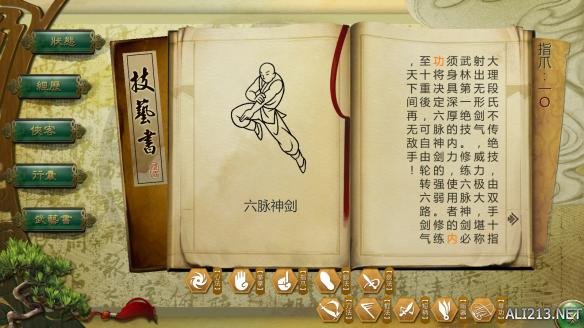 狀態
經歷
俠客
行囊
武藝書
技藝書
六脉神剑
大理段氏不传绝技，由双手十指
射出无形剑气，威力极大，堪称
武林第一绝技。修练六脉神剑必
须身具深厚的内力，使用者的内
功将决定六脉神剑的强弱。修练
至十重後，可自由轮转六路剑气
，天下间再无敌手！
指爪：一〇
ALI213.NET